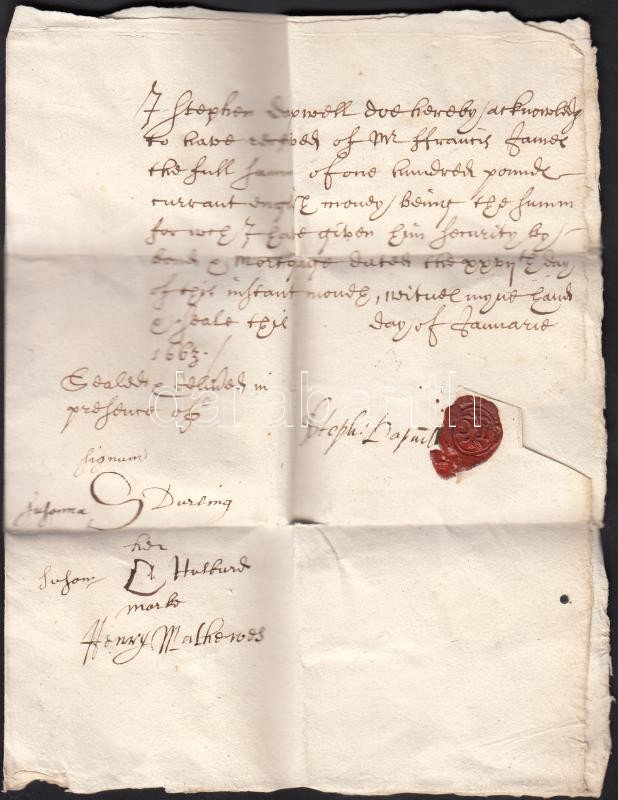 I Stephen Dapwell doe hereby acknowledg
to have receved of Mr ffrancis James
the full summ of one hundred pounds
currant english money being the summ
for wch I have given him security by
bond & Mortgage dated the xxvijth day
of this instant month, witnes myne hand
& seale this day of Januarie
1663.
Sealed & delived in
presence off
Steph: Dapwell
signum
Susanna S Durling
her
Susan Hulburd
marke
Henry Mathewes
darabanth